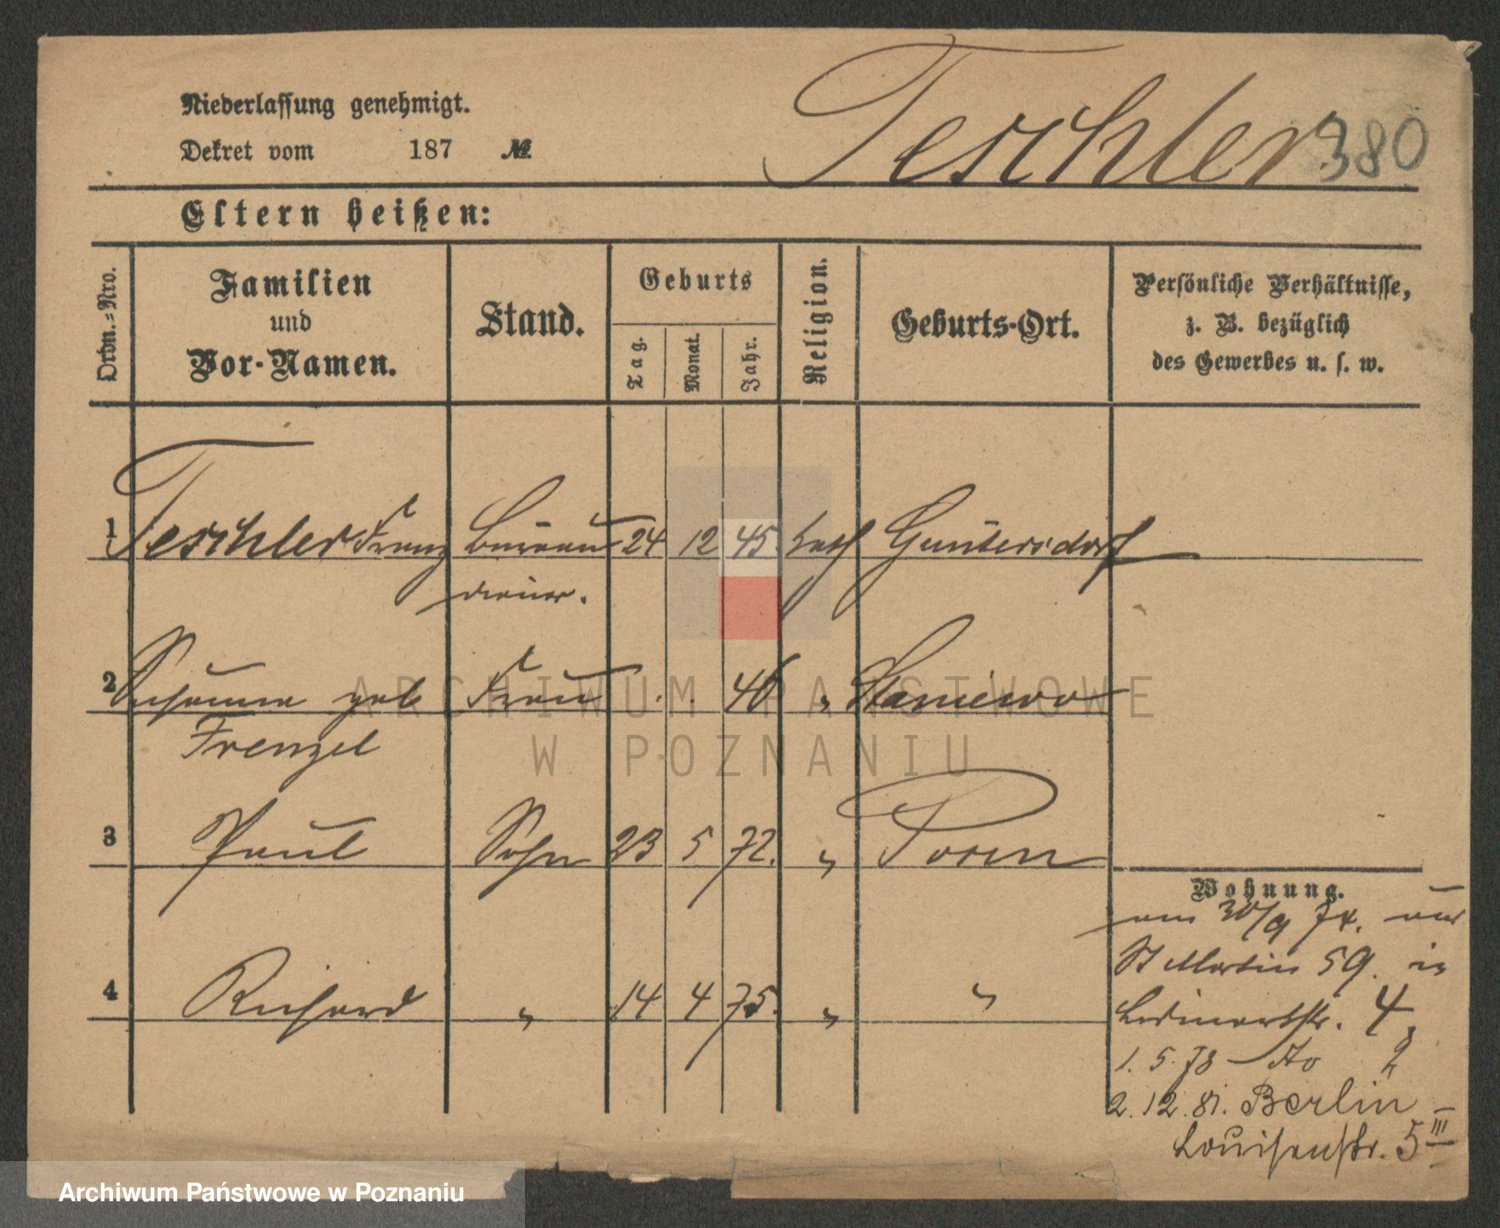 Niederlassung genehmigt.
Dekret vom 187 №
Teschler 380
Eltern heißen:
Ordn.-Nro.
Familien
und
Vor-Namen.
Stand.
Geburts
Tag.
Monat.
Jahr.
Religion.
Geburts-Ort.
Persönliche Verhältnisse,
z. B. bezüglich
des Gewerbes u. s. w.
1 Teschler Franz Büreau 24 12 45 kath Guntersdorf
diener.
2 Susanna geb Frau . . 46 " Staniewo
Frenzel
3 Paul Sohn 23 5 72. " Posen
4 Richard " 14 4 75. " "
Wohnung.
am 30/9 74. aus
St Martin 59. in
4
1. 5. 78 do 2
2. 12. 81. Berlin
Louisenstr. 5 III
ARCHIWUM PAŃSTWOWE
W POZNANIU
Archiwum Państwowe w Poznaniu